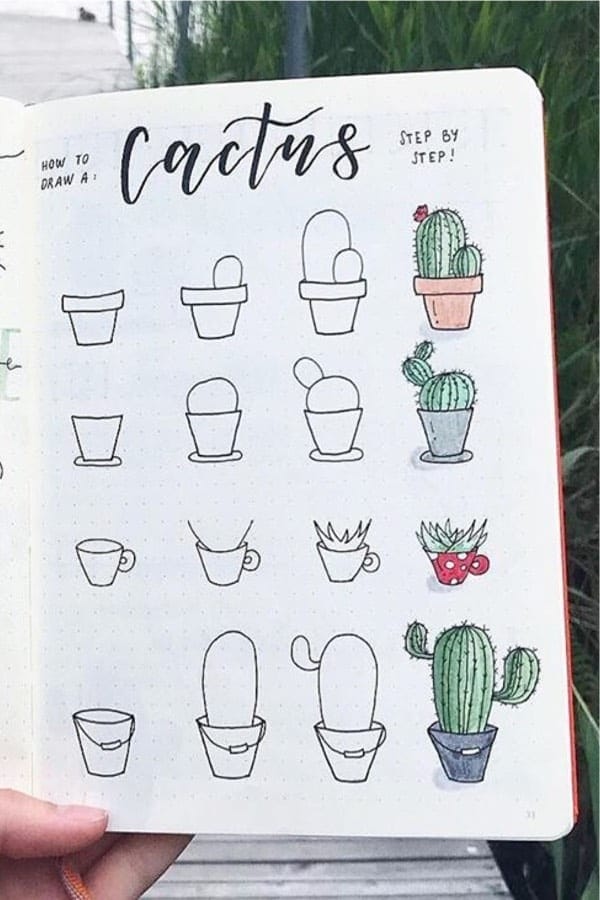 HOW TO
DRAW A:
Cactus
STEP BY
STEP!
31